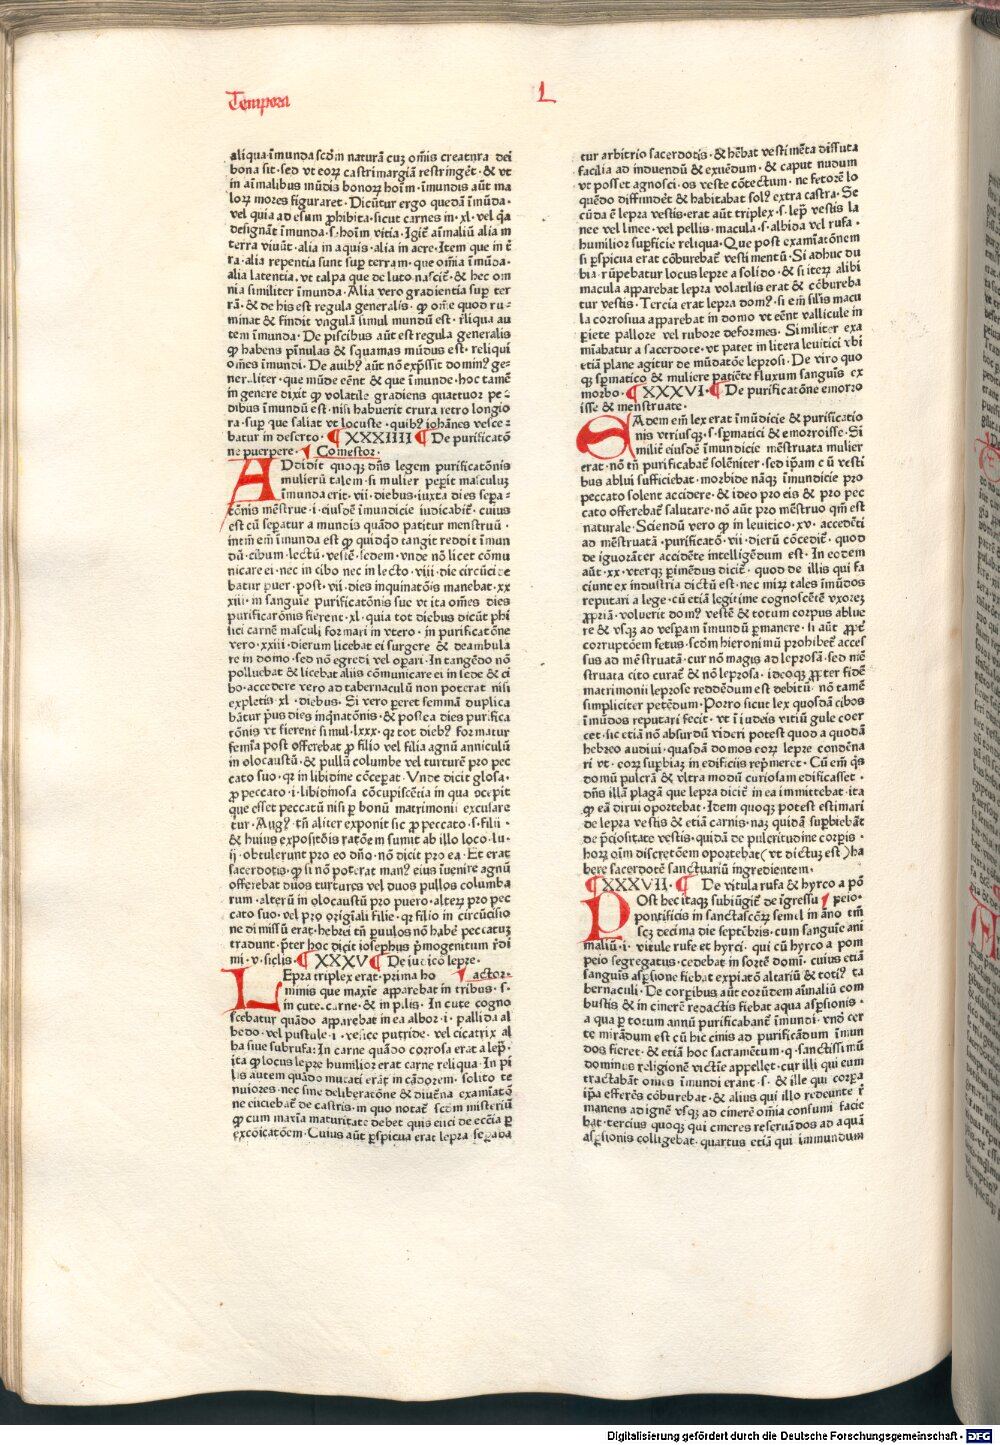 Tempora
L
aliqua īmunda scd̄m naturā cuȝ om̄is creatura dei
bona sit · sed vt eoꝝ castrimargiā restringēt · & vt
in aīmalibus mūdis bonoꝝ hoīm · īmundis aūt ma
loꝝ mores figuraret · Dicūtur ergo quedā īmūda ·
vel quia ad esum ꝓhibita · sicut carnes in · xl · vel q̄a
designāt īmunda · s · hoīm vitia · Igit̄ aīmaliū alia in
terra viuūt · alia in aquis · alia in aere · Item que in t̄
ra · alia repentia sunt sup̄ terram · que om̄ia īmūda ·
alia latentia · vt talpa que de luto nascit̄ · & hec om
nia similiter īmunda · Alia vero gradientia sup̄ ter
rā · & de his est regula generalis · ꝙ om̄e quod ru⸗
minat & findit vngulā simul mundū est · rl̄iqua au
tem īmunda · De piscibus aūt est regula generalis
ꝙ habens pīnulas & squamas mūdus est · reliqui
om̄es īmundi · De auibꝰ aūt nō exp̄ssit dominꝰ ge⸗
neraliter · que mūde eēnt & que īmunde · hoc tamē
in genere dixit ꝙ volatile gradiens quattuor pe⸗
dibus īmundū est · nisi habuerit crura retro longio
ra · sup̄ que saliat vt locuste · quibꝰ iohānes vesce⸗
batur in deserto · ¶ XXXIIII ¶ De purificatōe
ne puerpere · ¶ Comestor ·
ADdidit quoqꝫ dn̄s legem purificatōnis
mulierū talem · si mulier pep̄it masculuȝ
īmunda erit · vii · diebus · iuxta dies sepa⸗
tōnis mēstrue · i · eiusdē īmundicie iudicabit̄ · cuius
est cū sep̄atur a mundis quādo patitur menstruū ·
inti̅m em̄ īmunda est ꝙ quidqd̄ tangit reddit īmun
dū · cibum · lectū · vestē · sedem · vnde nō licet cōmu
nicare ei · nec in cibo nec in lecto · viii · die circūcide
batur puer · post · vii · dies inquinatōis manebat · xx
xiii · in sanguīe purificatōnis sue vt ita om̄es dies
purificatōnis fierent · xl · quia tot diebus dicūt phi
lici carnē masculi formari in vtero · in purificatōne
vero · xxiii · dierum licebat ei surgere & deambula
re in domo · sed nō egredi vel op̄ari · In tangēdo nō
polluebat & licebat aliis cōmunicare ei in sede & ci
bo · accedere vero ad tabernaculū non poterat nisi
expletis xl · diebus · Si vero p̄eret femīnā duplica
bātur pus dies inqnatōnis · & postea dies purifica
tōnis vt fierent simul · lxxx · qꝛ tot diebꝰ formatur
femīa post offerebat ꝓ filio vel filia agnū anniculū
in olocaustū · & pullū columbe vel turturē pro pec
cato suo · qꝛ in libidine cōcep̄at · Vnde dicit glosa ·
ꝓ peccato · i · libidinosa cōcupiscētia in qua cōcepit
que esset peccatū nisi p̄ bonū matrimonii excusare
tur · Augꝰ tn̄ aliter exponit sic ꝓ peccato · s · filii ·
& huius expositōis ratōem sumit ab illo loco · lu ·
ij · obtulerunt pro eo dn̄o · nō dicit pro ea · Et erat
sacerdotis · ꝙ si nō poterat manꝰ eius īuenire agnū
offerebat duos turtures vel duos pullos columba
rum · alterū in olocaustū pro puero · alteꝝ pro pec
cato suo · vel pro origīali filie · qꝛ filio in circūcisio
ne dimissū erat · hebrei tn̄ p̄uulos nō habē peccatuȝ
tradunt · p̄ter hoc dicit iosephus p̄mogenitum r̄di
mi · v · siclis · ¶ XXXV ¶ De iudicō lepre ·
LEpra triplex erat · prima ho ¶ actor ·
minis que maxīe apparebat in tribus · s ·
in cute · carne · & in pilis · In cute cogno
scebatur quādo apparebat in ea albor · i · pallida al
bedo · vel pustule · i · vesice putride · vel cicatrix al
ba siue subrufa: In carne quādo corrosa erat a lep̄ ·
ita ꝙ locus lepre humilior erat carne reliqua · In pi
lis autem quādo mutati erāt in cādorem · solito te
nuiores · nec sine deliberatōne & diuerna examīatō
ne eiiciebat̄ de castris · in quo notat̄ scd̄m misteriū
ꝙ cum maxīa maturitate debet quis eiici de ecc̄ia p̄
excōicatōem · Cuius aūt p̄spicua erat lepra sepaba
tur arbitrio sacerdotis · & hēbat vestimēta dissuta
facilia ad induendū & exuēdum · & caput nudum
vt posset agnosci · os veste cōtectum · ne fetorē lo
quēdo diffunderet & habitabat solꝰ extra castra · Se
cūda ē lepra vestis · erat aūt triplex · s · lep̄ vestis la
nee vel linee · vel pellis · macula · s · albida vel rufa ·
humilior sup̄ficie reliqua · Que post examīatōnem
si p̄spicua erat cōburebat̄ vestimentū · Si adhuc du
bia · rūpebatur locus lepre a solido · & si iteꝝ alibi
macula apparebat lepra volatilis erat & cōbureba
tur vestis · Tercia erat lepra domꝰ · si em̄ sil̄is macu
la corrosiua apparebat in domo vt eēnt vallicule in
p̄iete pallore vel rubore deformes · Similiter exa
mīabatur a sacerdote · vt patet in litera leuitici vbi
etiā plane agitur de mūdatōe leprosi · De viro quo
qꝫ sp̄matico & muliere patiēte fluxum sanguīs ex
morbo · ¶ XXXVI · ¶ De purificatōne emorro
isse & menstruate ·
SAdem em̄ lex erat īmūdicie & purificatio
nis vtriusqꝫ · s · sp̄matici & emorroisse · Si
militē eiusdē īmundicie mēstruata mulier
erat · nō tn̄ purificabat̄ solēniter · sed ip̄am cū vesti
bus ablui sufficiebat · morbide nāqꝫ īmundicie pro
peccato solent accidere · & ideo pro eis & pro pec
cato offerebat̄ salutare · nō aūt pro mēstruo qm̄ est
naturale · Sciendū vero ꝙ in leuitico · xv · accedēti
ad mēstruatā · purificatō · vii · dierū cōcedit̄ · quod
de ignorāter accidēte intelligēdum est · In eodem
aūt · xx · vterqꝫ p̄imēdus dicit̄ · quod de illis qui fa
ciunt ex industria dictū est · nec miꝝ tales īmūdos
reputari a lege · cū etiā legitime cognoscētē vxoreȝ
ꝓpriā · voluerit domꝰ vestē & totum corpus ablue
re & vsqꝫ ad vesp̄am īmundū p̄manere · si aūt ꝓpt̄
corruptōem fetus · scd̄m hieronimū prohibet̄ acces
sus ad mēstruatā · cur nō magis ad leprosā · sed mē
struata cito curat̄ & nō leprosa · ideoqꝫ ꝓpter fidē
matrimonii leprose reddēdum est debitū · nō tamē
simpliciter petēdum · Porro sicut lex quosdā cibos
īmūdos reputari fecit · vt ī iudeis vitiū gule coer
cet · sic etiā nō absurdū videri potest quod a quodā
hebreo audiui · quasdā domos eoꝝ lepre condēna
ri vt · eoꝝ sup̄biaȝ in edificiis rep̄meret · Cū em̄ qs
domū pulcrā & vltra modū curiosam edificasset ·
dn̄s illā plagā que lepra dicit̄ in ea immittebat · ita
ꝙ eā dirui oportebat · Idem quoqꝫ potest estimari
de lepra vestis & etiā carnis · naȝ quidā sup̄biebāt
de p̄ciositate vestis · quidā de pulcritudine corpis ·
hoꝝ oīm discretōem oportebat (vt dictuȝ est) ha
bere sacerdotē sanctuariū ingredientem ·
¶ XXXVII · ¶ De vitula rufa & hyrco a pō
POst hec itaqꝫ subiūgit̄ de īgressu ¶ peio ·
pontificio in sanctascōꝝ semel in āno tm̄
scȝ decima die septēbris · cum sanguīe ani
maliū · i · vitule rufe et hyrci · qui cū hyrco a pom
peio segregatus · cedebat in sortē domī · cuius etiā
sanguīs aspsione fiebat expiatō altariū & totiꝰ ta
bernaculi · De corp̄ibus aūt eorūdem aīmaliū com
bustis & in cinerē redactis fiebat aqua asp̄sionis ·
a qua p̄ totum annū purificabant̄ īmundi · vnde cer
te mirādum est cū hic cinis ad purificādum īmun
dos fieret · & etiā hoc sacramētum · q · sanctissimū
dominus religionē victīe appellet · cur illi qui eum
tractabāt om̄es īmundi erant · s · & ille qui corpa
ip̄a efferēs cōburebat · & alius qui illo redeunte r̄
manens ad ignē vsqꝫ ad cinerē om̄ia consumi facie
bat · tercius quoqꝫ qui cineres reseruādos ad aquā
asp̄sionis colligebat · quartus etiā qui immundum
Digitalisierung gefördert durch die Deutsche Forschungsgemeinschaft - DFG